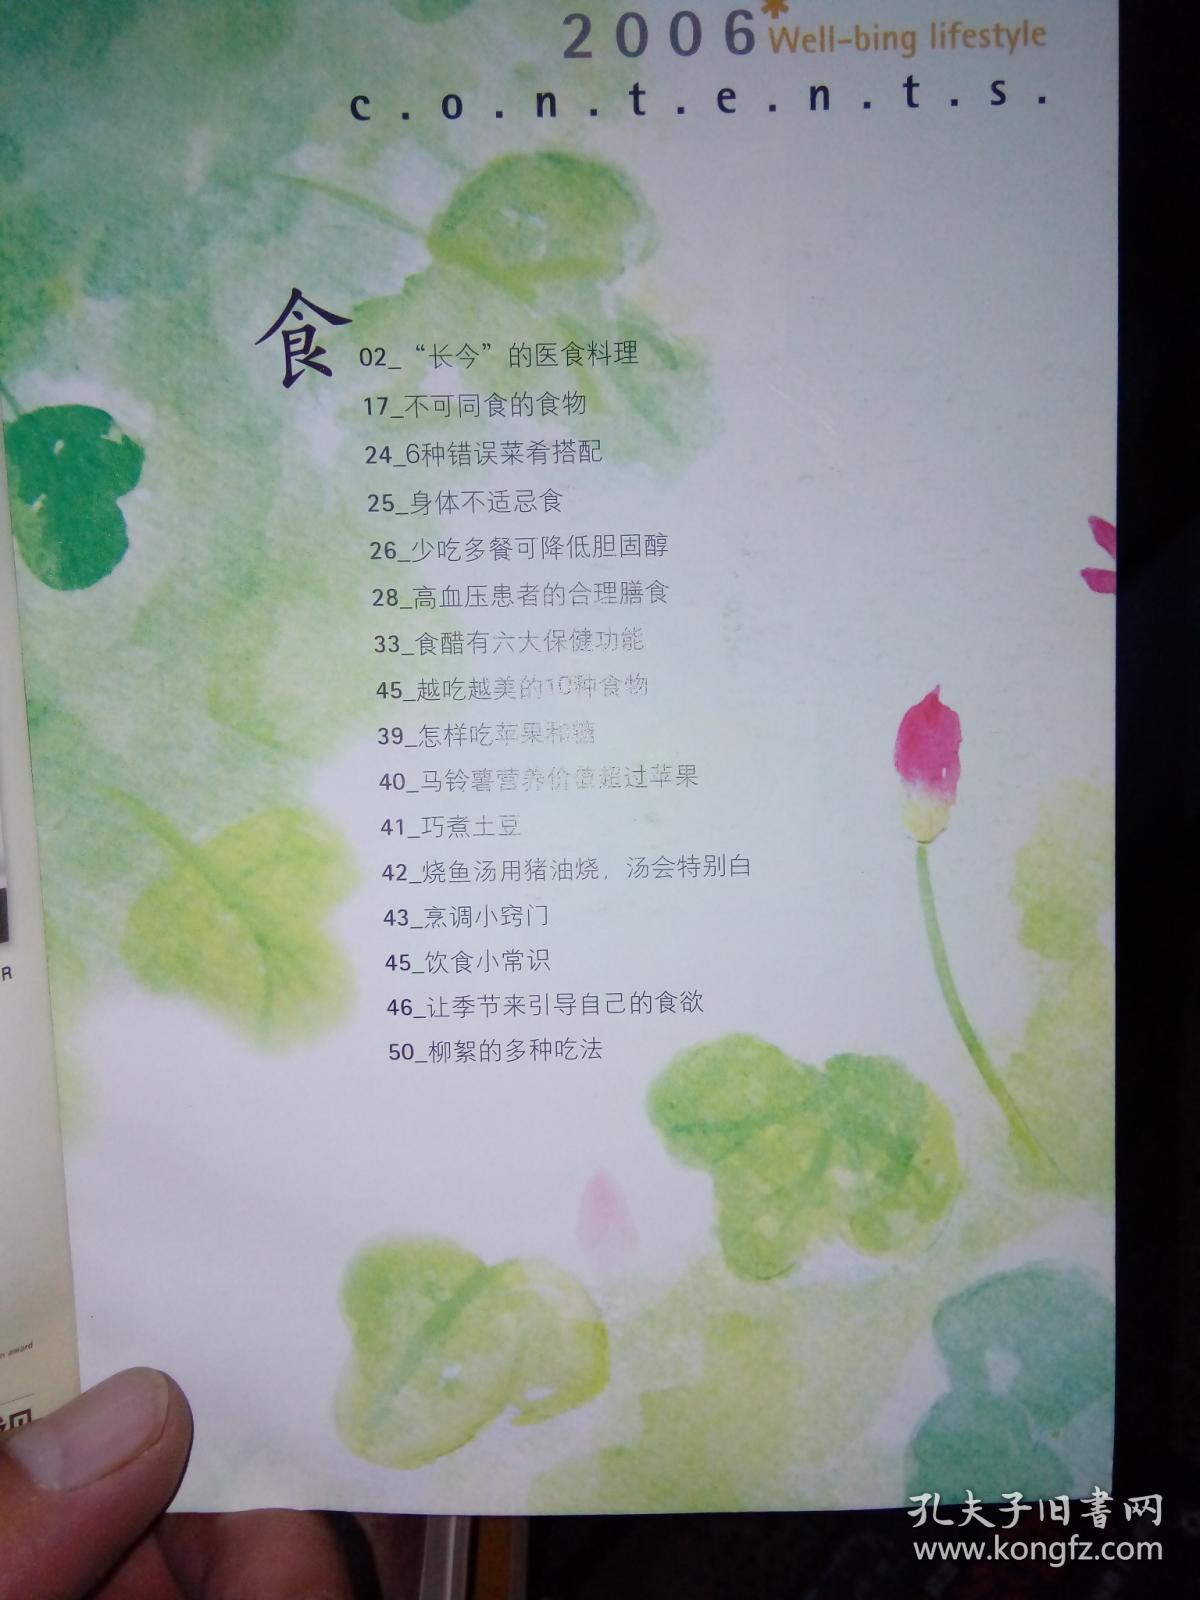 2006*Well-bing lifestyle
c.o.n.t.e.n.t.s.
食
02_“长今”的医食料理
17_不可同食的食物
24_6种错误菜肴搭配
25_身体不适忌食
26_少吃多餐可降低胆固醇
28_高血压患者的合理膳食
33_食醋有六大保健功能
45_越吃越美的10种食物
39_怎样吃苹果和糖
40_马铃薯营养价值超过苹果
41_巧煮土豆
42_烧鱼汤用猪油烧，汤会特别白
43_烹调小窍门
45_饮食小常识
46_让季节来引导自己的食欲
50_柳絮的多种吃法
R
n award
孔夫子旧书网
www.kongfz.com